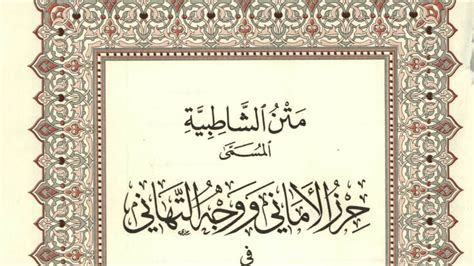 مَتْنُ الشَّاطِبِيَّةِ
المُسَمَّى
حِرْزُ الْأَمَانِي وَوَجْهُ التَّهَانِي
فِي